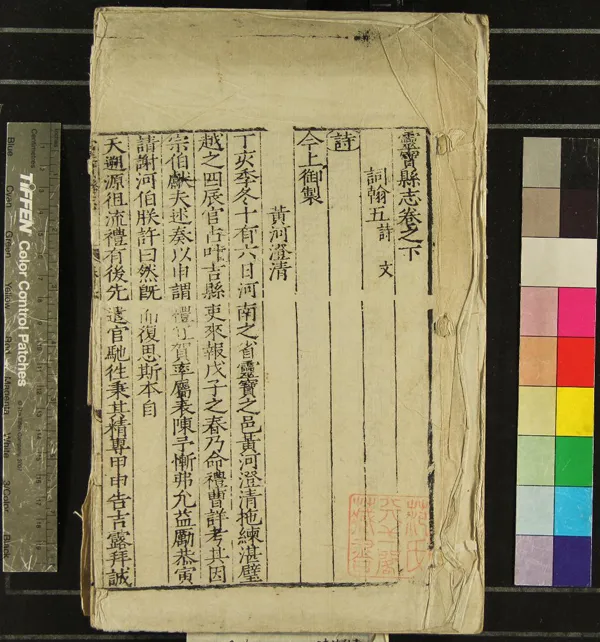 靈寶縣志卷之下
詞翰五 詩 文
詩
今上御製
黃河澄清
丁亥季冬十有六日河南之省靈寶之邑黃河澄清拖練湛璧
越之四辰官占叶吉縣吏來報戊子之春乃命禮曹詳考其因
宗伯獻夫述奏以申謂禮宜賀率屬表陳予慚弗允益勵恭寅
請謝河伯朕許曰然旣而復思斯本自
天遡源祖流禮有後先遣官馳徃秉其精專甲申告吉露拜誠
TIFFEN Color Control Patches
Centimetres
Blue
Cyan
Green
Yellow
Red
Magenta
White
3/Color
Black